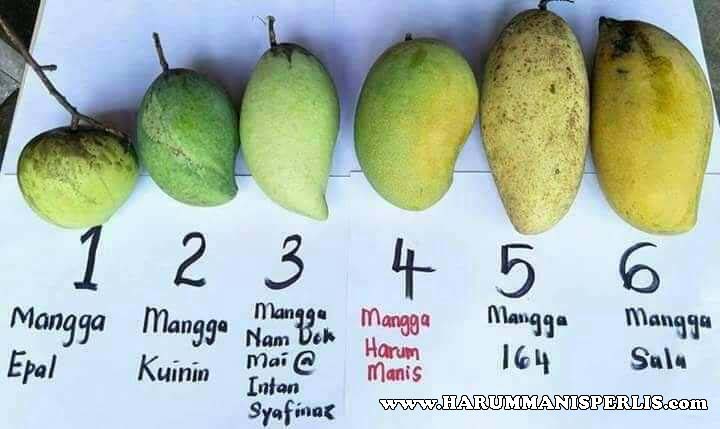 1
Mangga
Epal
2
Mangga
Kuinin
3
Mangga
Nam Dok
Mai @
Intan
Syafinaz
4
Mangga
Harum
Manis
5
Mangga
164
6
Mangga
Sala
www.HARUMMANISPERLIS.com